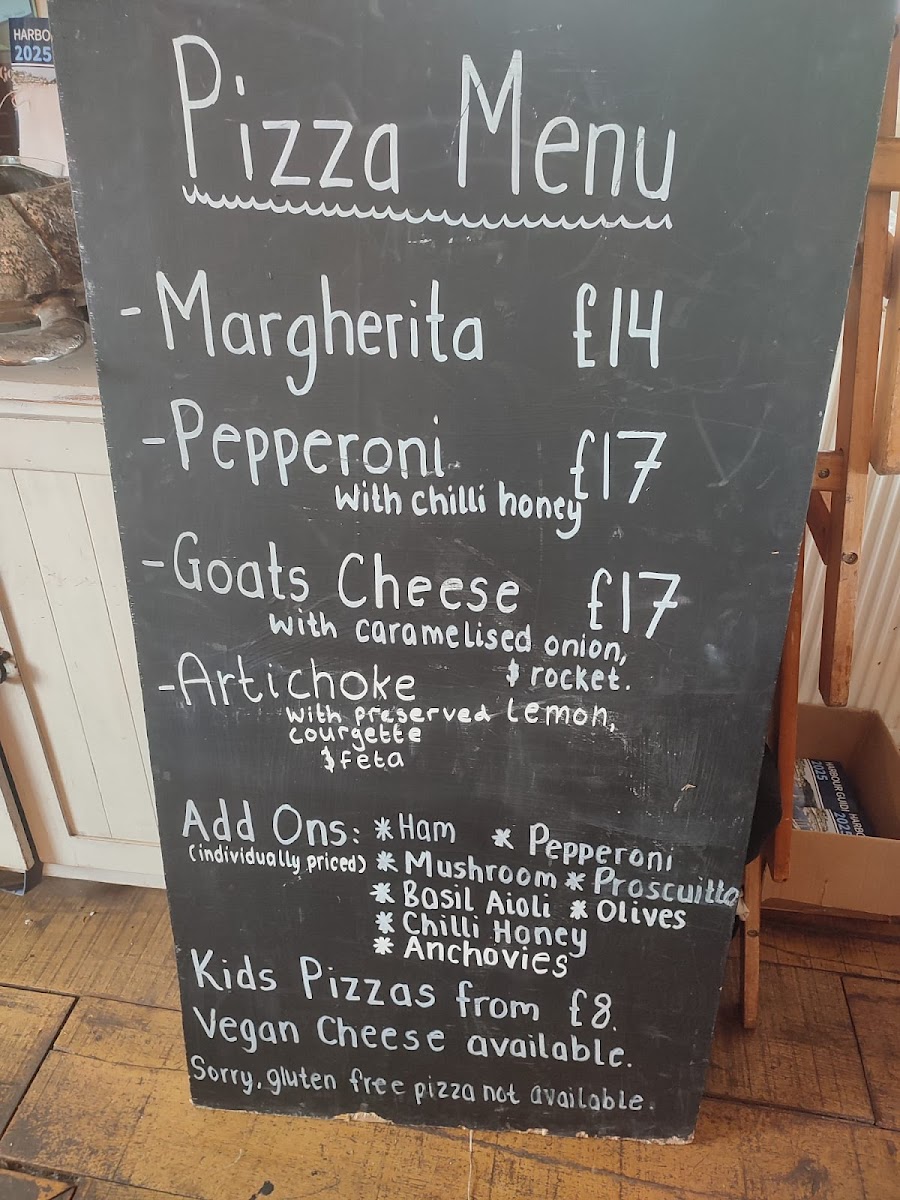 HARBO
2025
Pizza Menu
- Margherita £14
- Pepperoni £17
with chilli honey
- Goats Cheese £17
with caramelised onion,
& rocket.
- Artichoke
with preserved lemon,
courgette
& feta
Add Ons: * Ham * Pepperoni
(individually priced) * Mushroom * Proscuitto
* Basil Aioli * Olives
* Chilli Honey
* Anchovies
Kids Pizzas from £8.
Vegan Cheese available.
Sorry, gluten free pizza not available.
HARBOUR GUID
2025